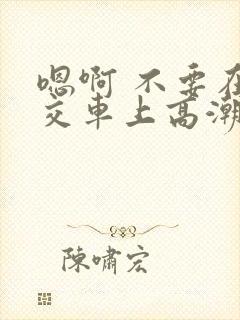 嗯啊 不要在
交车上高潮
陳嘯宏